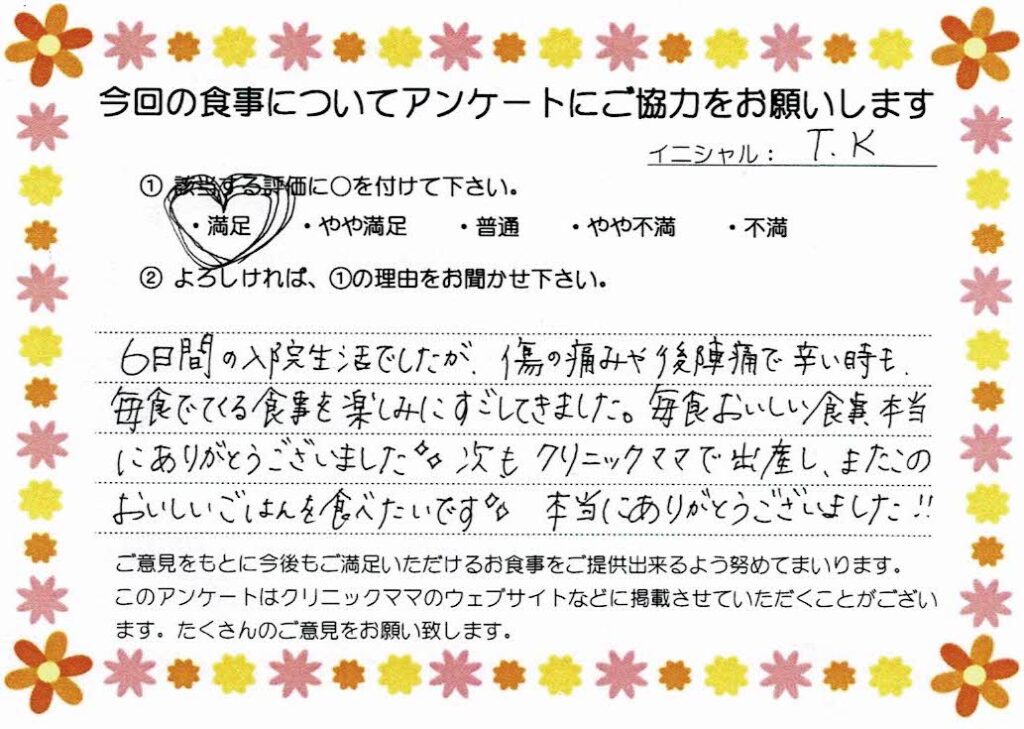 今回の食事についてアンケートにご協力をお願いします
イニシャル： T.K
① 該当する評価に○を付けて下さい。
・満足 ・やや満足 ・普通 ・やや不満 ・不満
② よろしければ、①の理由をお聞かせ下さい。
6日間の入院生活でしたが、傷の痛みや後陣痛で辛い時も、
毎食でてくる食事を楽しみにすごしてきました。毎食おいしい食事本当
にありがとうございました 次もクリニックママで出産し、またこの
おいしいごはんを食べたいです 本当にありがとうございました!!
ご意見をもとに今後もご満足いただけるお食事をご提供出来るよう努めてまいります。
このアンケートはクリニックママのウェブサイトなどに掲載させていただくことがござい
ます。たくさんのご意見をお願い致します。